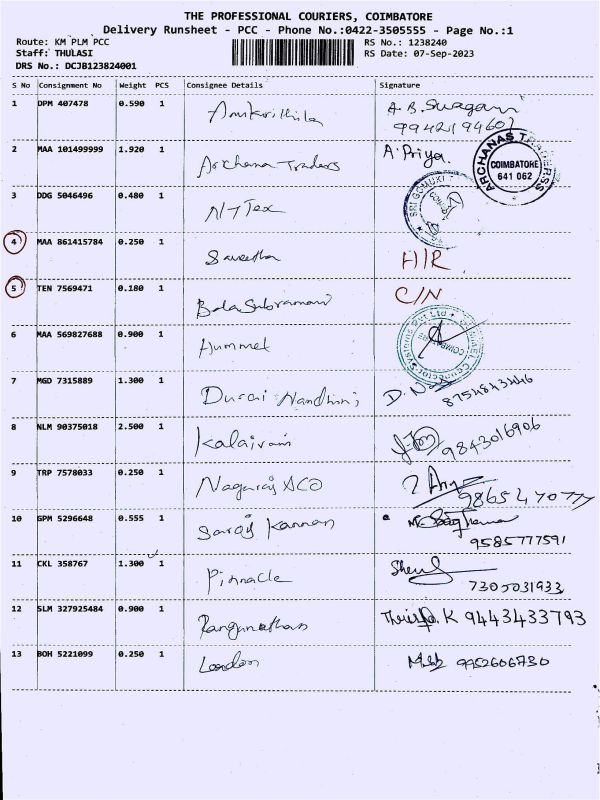 THE PROFESSIONAL COURIERS, COIMBATORE
Delivery Runsheet - PCC - Phone No.:0422-3505555 - Page No.:1
Route: KM PLM PCC
RS No.: 1238240
Staff: THULASI
RS Date: 07-Sep-2023
DRS No.: DCJB123824001
S No Consignment No Weight PCS Consignee Details Signature
1 DPM 407478 0.590 1
2 MAA 101499999 1.920 1 Archana Traders A. Priya.
ARCHANAS TRADERSS COIMBATORE 641 062
3 DDG 5046496 0.480 1 NT Tex
4 MAA 861415784 0.250 1 Saveetha H/R
5 TEN 7569471 0.180 1 Bala Subramani C/N
6 MAA 569827688 0.900 1 Hummel
7 MGD 7315889 1.300 1 Durai Nandhini
8754843446
8 NLM 90375018 2.500 1 Kalaivani 9843016906
9 TRP 7578033 0.250 1 Nagaraj &CO
10 GPM 5296648 0.555 1 Saroj Kannan
9585777591
11 CKL 358767 1.300 1 Pinnacle
7305031933
12 SLM 327925484 0.900 1 Ranganathan K 9443433793
13 BOH 5221099 0.250 1 London 9952606730